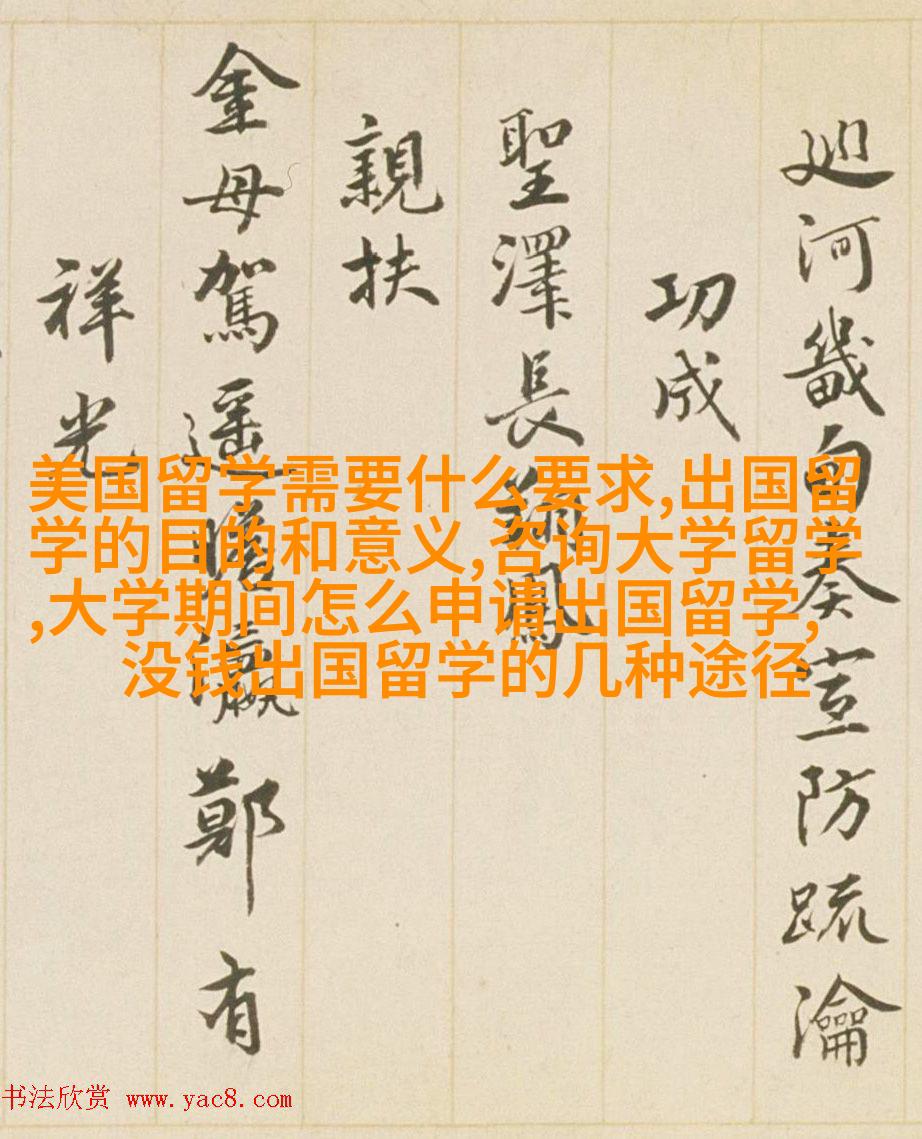 廵河畿自奏宣防疏瀹
功成
聖澤長翔鳳
親扶
金母駕遥瞻瀛鄭有
祥光
美国留学需要什么要求,出国留
学的目的和意义,咨询大学留学
,大学期间怎么申请出国留学,
没钱出国留学的几种途径
书法欣赏 www.yac8.com